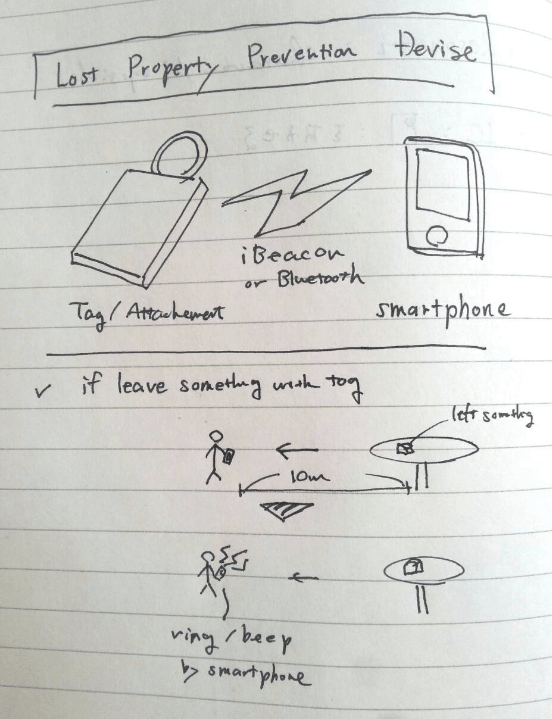 Lost Property Prevention Devise
iBeacon
or Bluetooth
Tag/Attachement
smartphone
✓ if leave somethng with tag
left somethng
10m
ring/beep
by smartphone